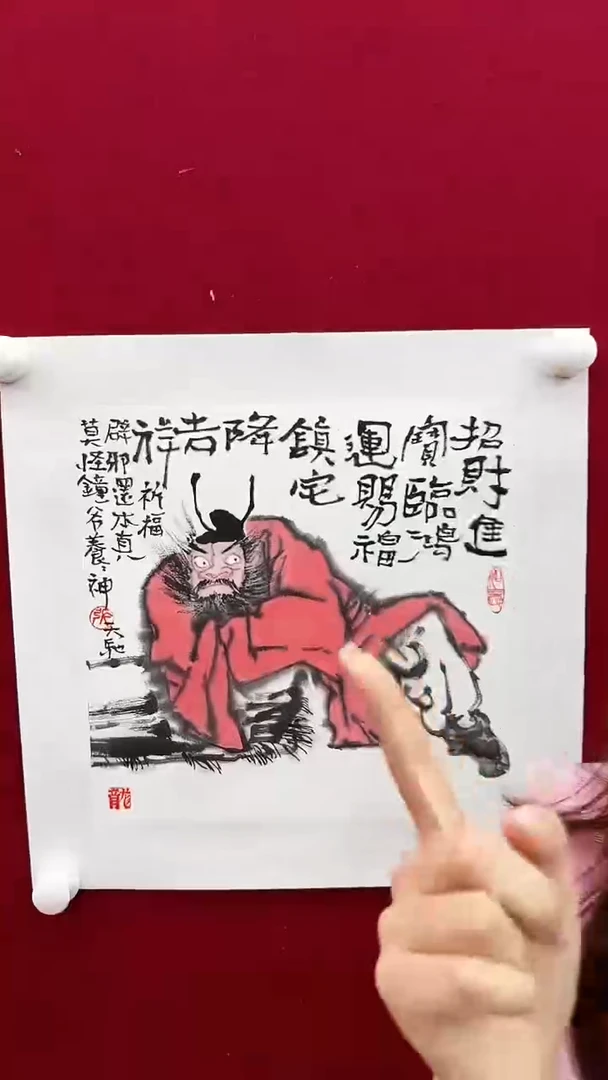 招財進
寶臨鴻
運賜福
鎮宅
降
吉
祥
祈福
辟邪還本真
莫怪鐘爷養々神